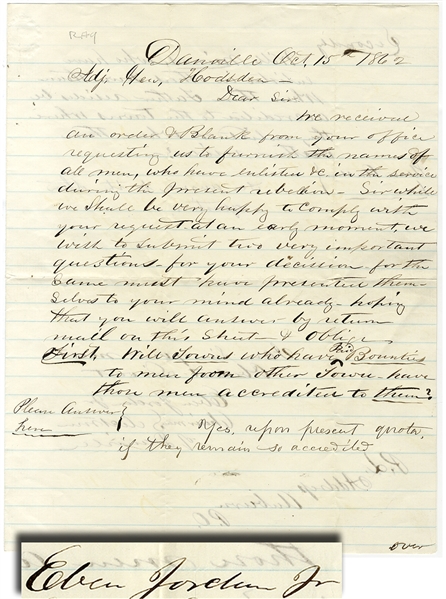 RAY
Danville Oct. 15th 1862
Adj. Gen, Hodsden -
Dear Sir
We received
an order & Blank from your office
requesting us to furnish the names of
all men, who have enlisted &c in the service
during the present rebelion - Sir while
we shall be very happy to comply with
your request at an early moment, we
wish to submit two very important
questions - for your decision - for the
same must have presented them-
selves to your mind already - hoping
that you will answer by return
mail on this Sheet - & Oblige
First, Will Towns who have Paid Bounties
to men from other Towns - have
those men accredited to them?
Please Answer
here
Yes, upon present quota,
if they remain so accredited
over
Eben Jordan Jr